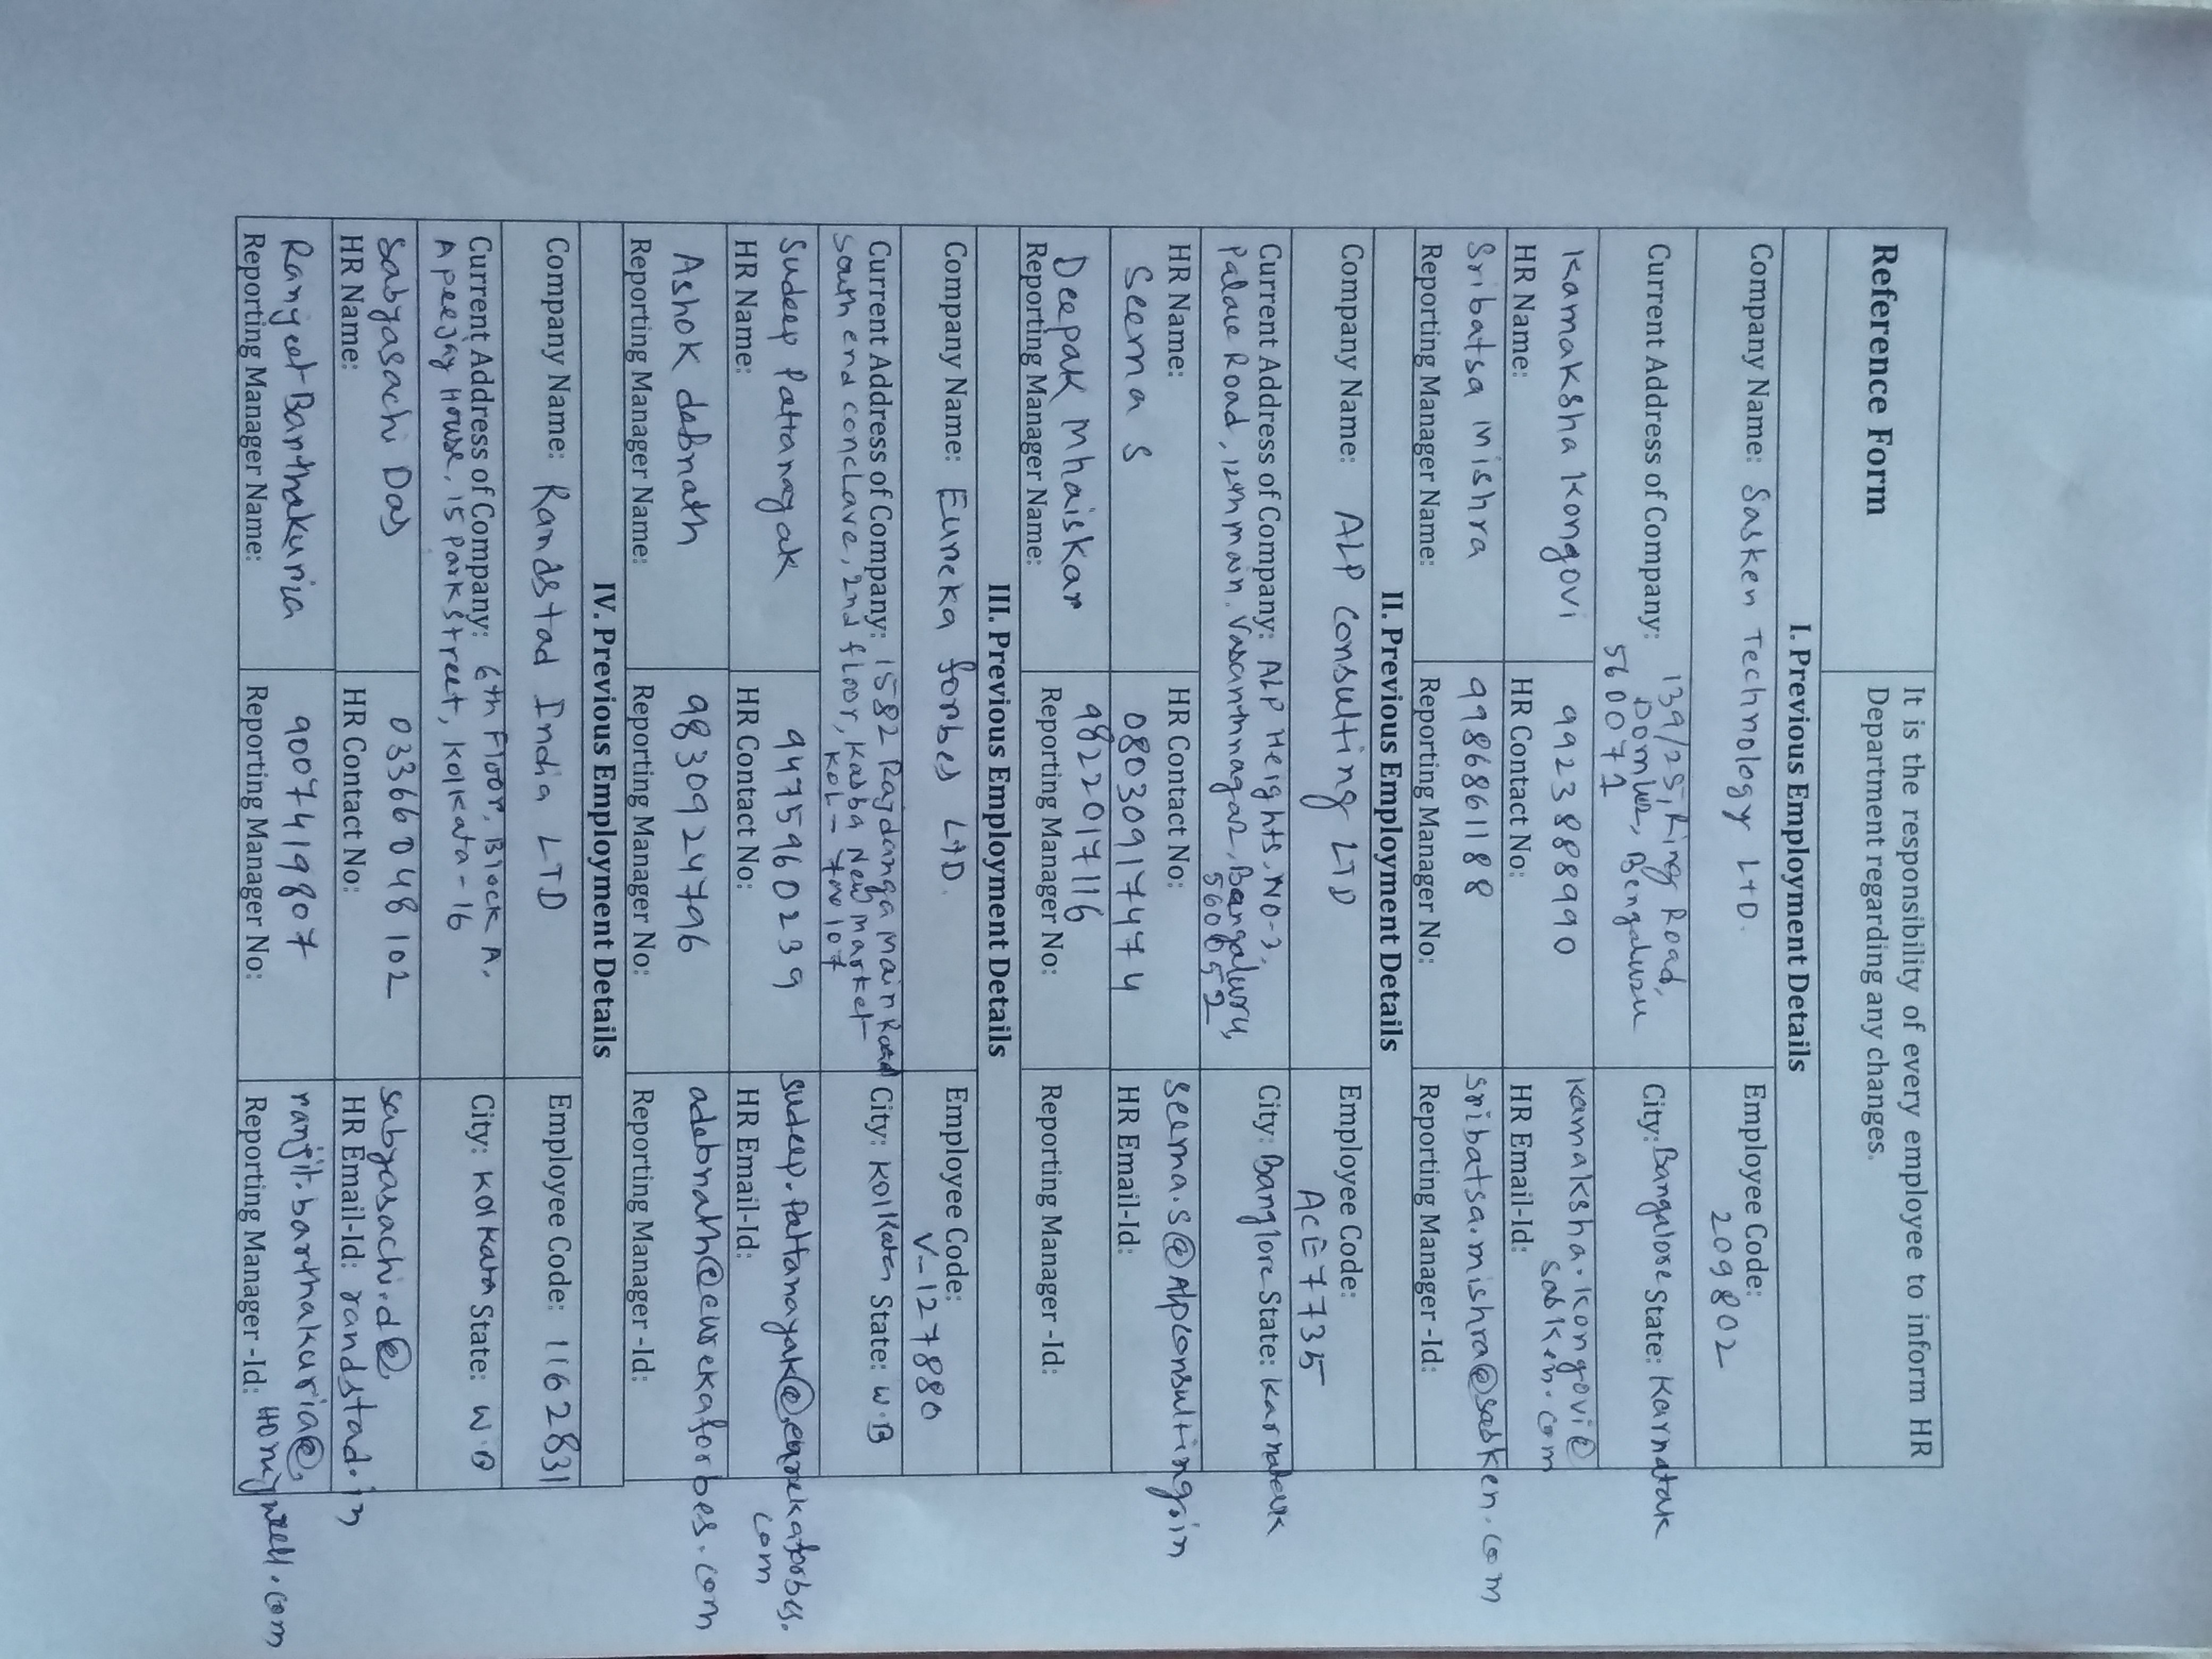 Reference Form
It is the responsibility of every employee to inform HR
Department regarding any changes.
I. Previous Employment Details
Company Name: Sasken Technology LTD.
Employee Code:
209802
Current Address of Company: 139/25, Ring Road,
Domlur, Bengaluru
560071
City: Bangalore State: Karnatak
Kamaksha Kongovi
HR Name:
9923888990
HR Contact No:
kamaksha.kongovi@
sasken.com
HR Email-Id:
Sribatsa Mishra
Reporting Manager Name:
9986861188
Reporting Manager No:
sribatsa.mishra@sasken.com
Reporting Manager -Id:
II. Previous Employment Details
Company Name: ALP Consulting LTD
Employee Code:
ACE7735
Current Address of Company: ALP Heights, NO-3,
Palace Road, 12th main, Vasanthnagar, Bangaluru,
560052
City: Banglore State: Karnatak
HR Name:
Seema S
HR Contact No:
08030917474
seema.s@Alpconsulting.in
HR Email-Id:
Deepak Mhaiskar
Reporting Manager Name:
9822017116
Reporting Manager No:
Reporting Manager -Id:
III. Previous Employment Details
Company Name: Eureka forbes LTD.
Employee Code:
V-127880
Current Address of Company: 1582 Rajdanga main Road
South end conclave, 2nd floor, Kasba New market
KOL- 700107
City: Kolkata State: W.B
Sudeep Pattanayak
HR Name:
9475960239
HR Contact No:
sudeep.pattanayak@eurekaforbes.
com
HR Email-Id:
Ashok debnath
Reporting Manager Name:
9830924796
Reporting Manager No:
adebnath@eurekaforbes.com
Reporting Manager -Id:
IV. Previous Employment Details
Company Name: Randstad India LTD
Employee Code: 1162831
Current Address of Company: 6th Floor, Block A,
Apeejay House, 15 Park street, Kolkata-16
City: Kolkata State: W.B
Sabyasachi Das
HR Name:
03366048102
HR Contact No:
sabyasachi.d@
HR Email-Id: randstad.in
Ranjeet Barthakuria
Reporting Manager Name:
9007419807
Reporting Manager No:
ranjit.barthakuria@
Reporting Manager -Id: Honeywell.com